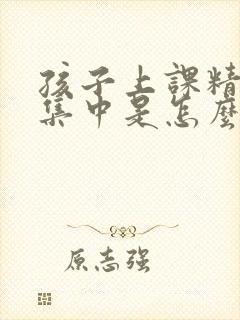 孩子上課精
集中是怎麼
原志强